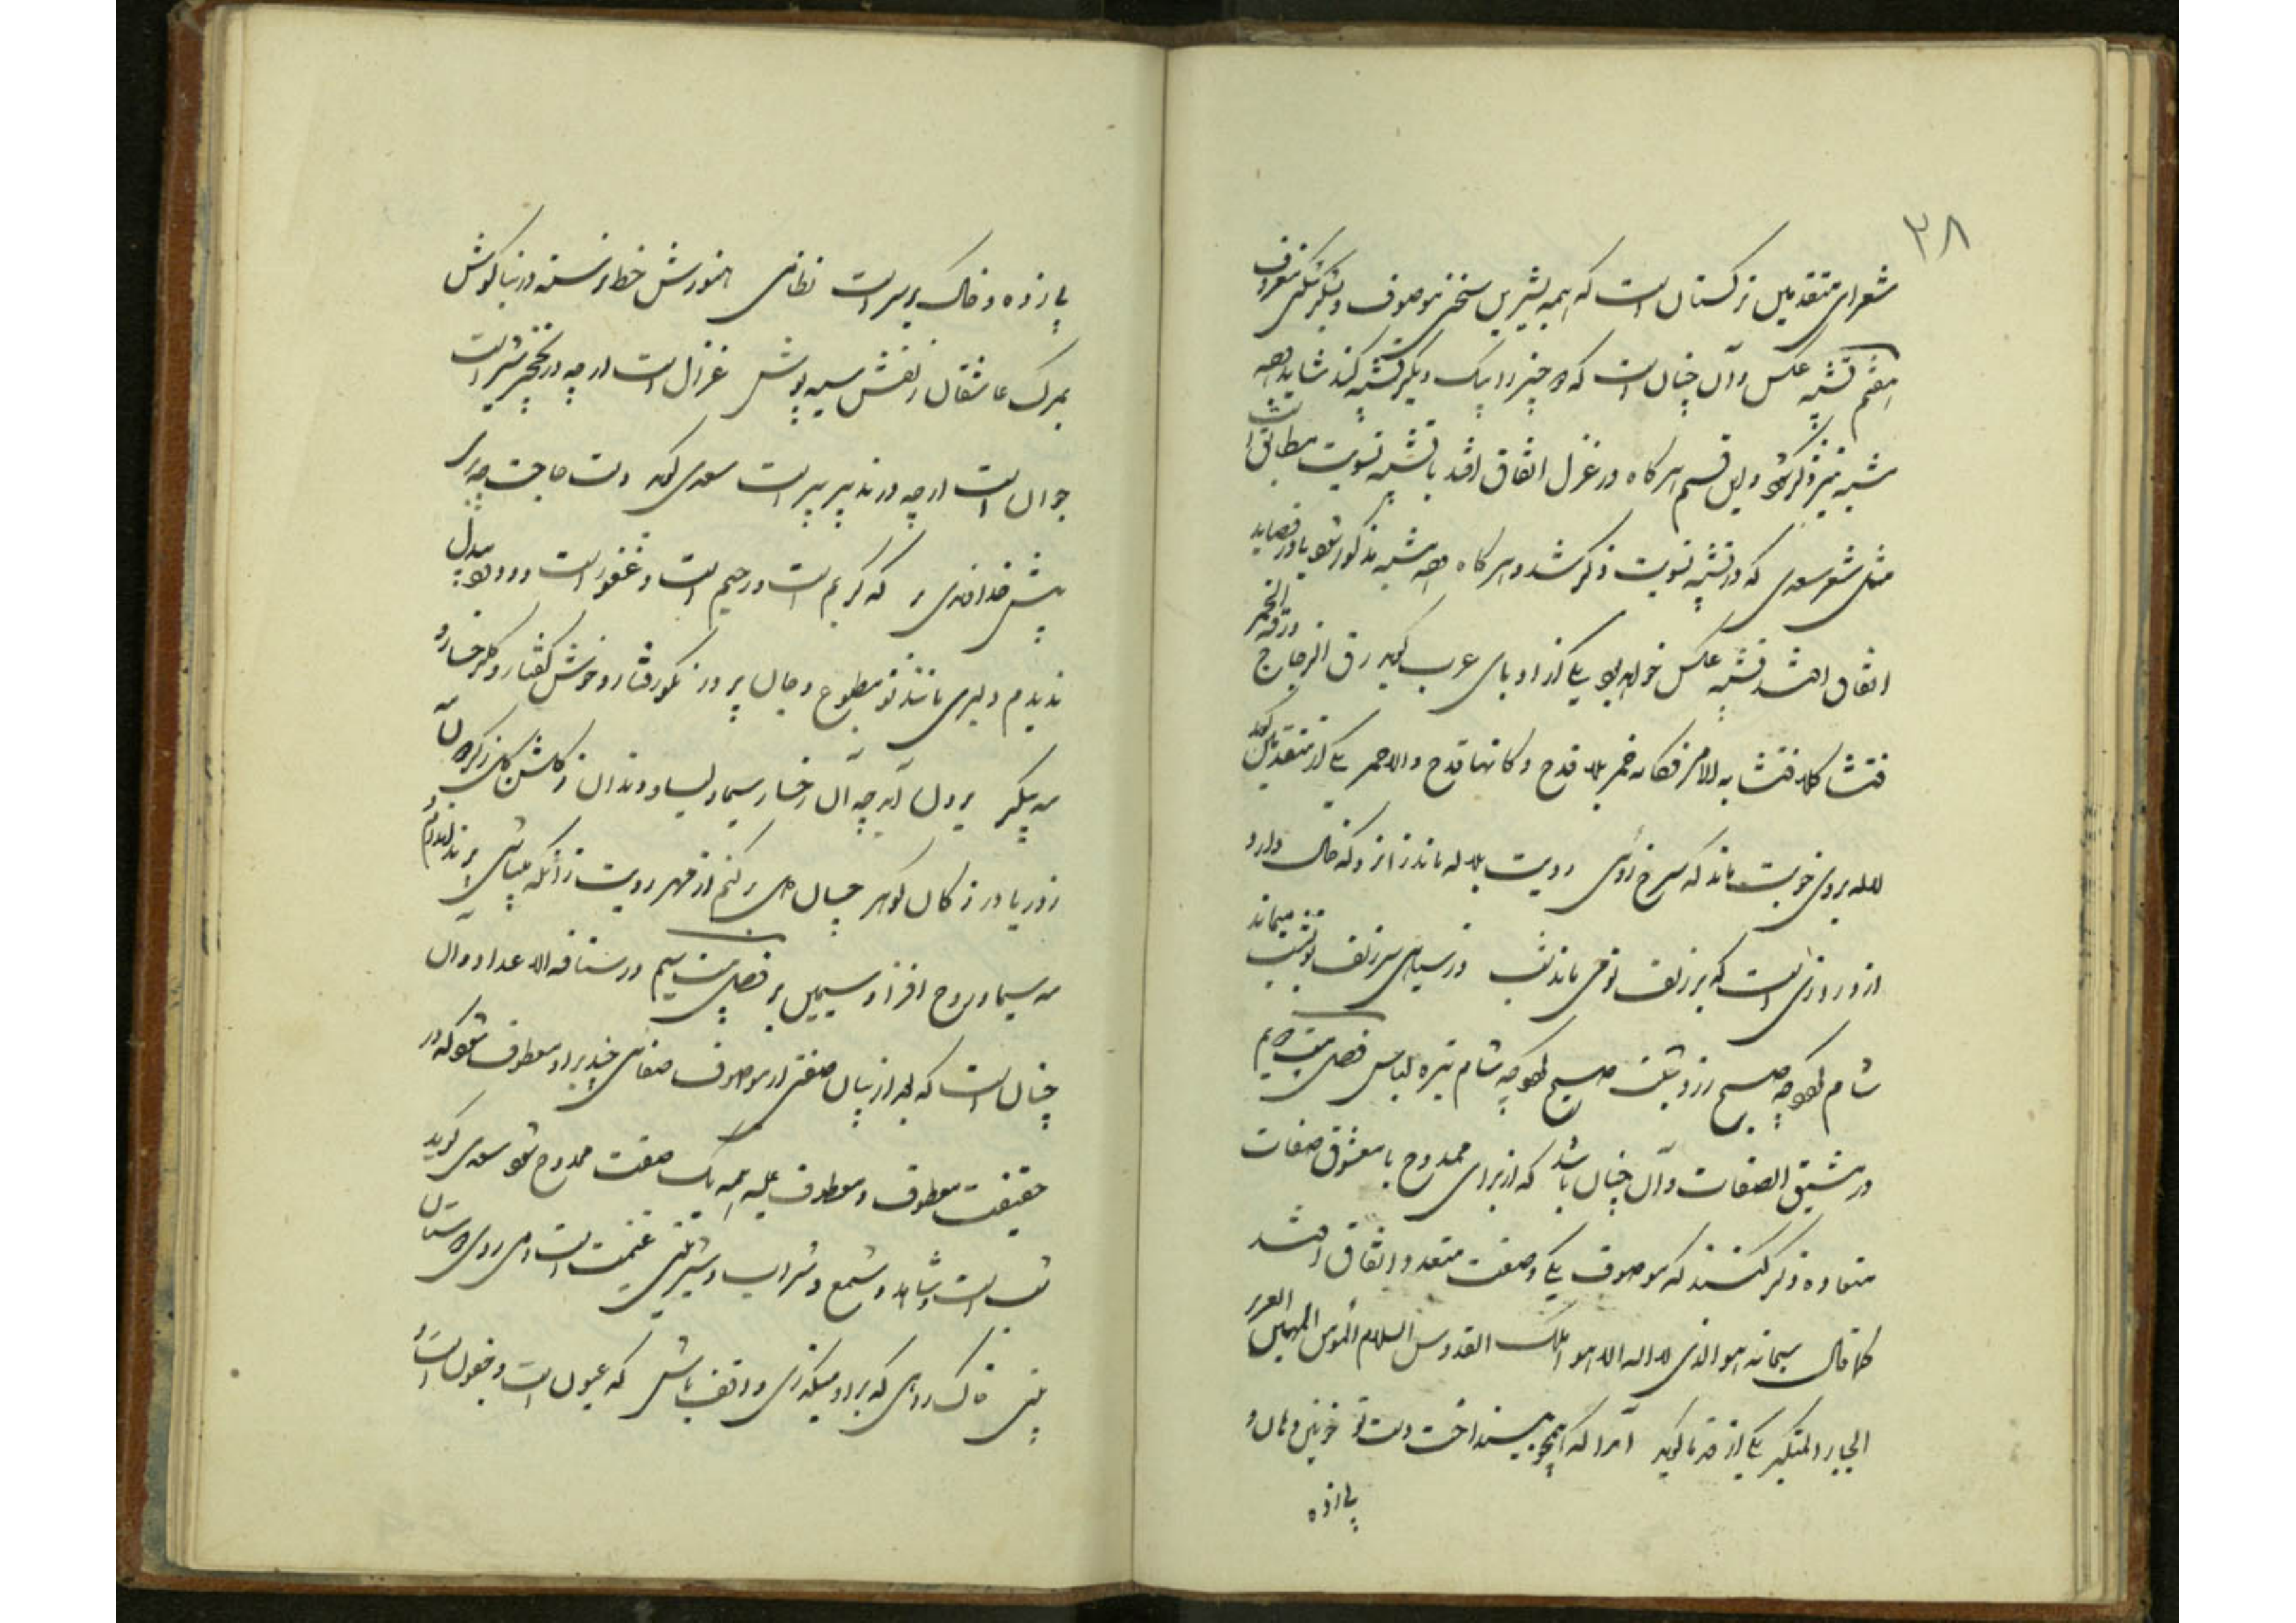 ۳۸
شعرای متقدمین ترکستان است که همه بشیرین سخنی موصوف و بشکرشکنی معروف
هفتم تشبیه عکس و آن چنان است که دو چیز را بیک دیگر تشبیه کنند شاید وجه
شبه نیز ذکر شود و این قسم هرگاه در غزل اتفاق افتد با تشبیه تسویت مطابق است
مثل شعر سعدی که در تشبیه تسویت ذکر شد و هرگاه وجه شبه مذکور شود یا در قصاید
اتفاق افتد تشبیه عکس خواهد بود یکی از ادبای عرب گوید رق الزجاج ورقت الخمر
فتشابها کلا فتشابه الامر فکانه خمر بلا قدح و کانها قدح ولا خمر یکی از متقدمین گوید
لاله بروی خوبت ماند که سرخ‌روئی رویت بلاله ماند زانرو که خال دارد
از درازی است که بر زلف تو می‌ماند شب در سیاهی سر زلف تو بشب میماند
شام بود چه صبح رزد شلف صبح بود چه شام تیره لباس فصل بیست و یم
در تنسیق الصفات و آن چنان باشد که از برای ممدوح یا معشوق صفات
متعدده ذکر کنند که موصوف یکی و صفت متعدد اتفاق افتد
کما قال سبحانه هو الذی لا اله الا هو الملک القدوس السلام المؤمن المهیمن العزیز
الجبار المتکبر یکی از قدما گوید آنرا که همچو بیند اخت دست تو خونین دهان و
پازده
پازده و خاک بر سر است نظامی هنورش خط نرسته در بناگوش
بمرگ عاشقان زلفش سیه پوش غزال است ار چه در نخجیر شیر است
جوان است ار چه در تدبیر پیر است سعدی گوید دست حاجت چه بری
پیش خداوندی بر که کریم است و رحیم است و غفور است و ودود بیدل
ندیدم دلبری مانند تو مطبوع و جان پرور نکورفتار و خوش گفتار و گلرخسار و
مه پیکر بدل آید چه آن رخسار سیما و لب و دندان ز گلشن گل ز گردون
ز دریا در ز کان گوهر چسان دل برکنم از مهر رویت زآنکه میباشی پریزاده و
مه سیما و روح افزا و سیمین بر فصل بیست و سیم در سیاقة الاعداد و آن
چنان است که بعد از بیان صفتی از موصوف صفاتی چند بر او معطوف شود که در
حقیقت معطوف و معطوف علیه همه یک صفت ممدوح شود سعدی گوید
شب است و شاهد و شمع و شراب و شیرینی غنیمت است دمی روی دوستان
بینی خاک راهی که بر او میگذری واقف باش که عیون است و جفون است و